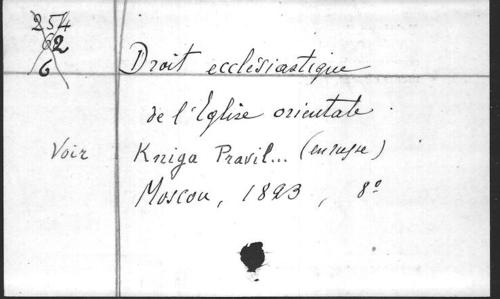 254
62
6
Droit ecclésiastique
de l'Eglise orientale.
Voir Kniga Pravil... (en russe)
Moscou, 1893, 8°